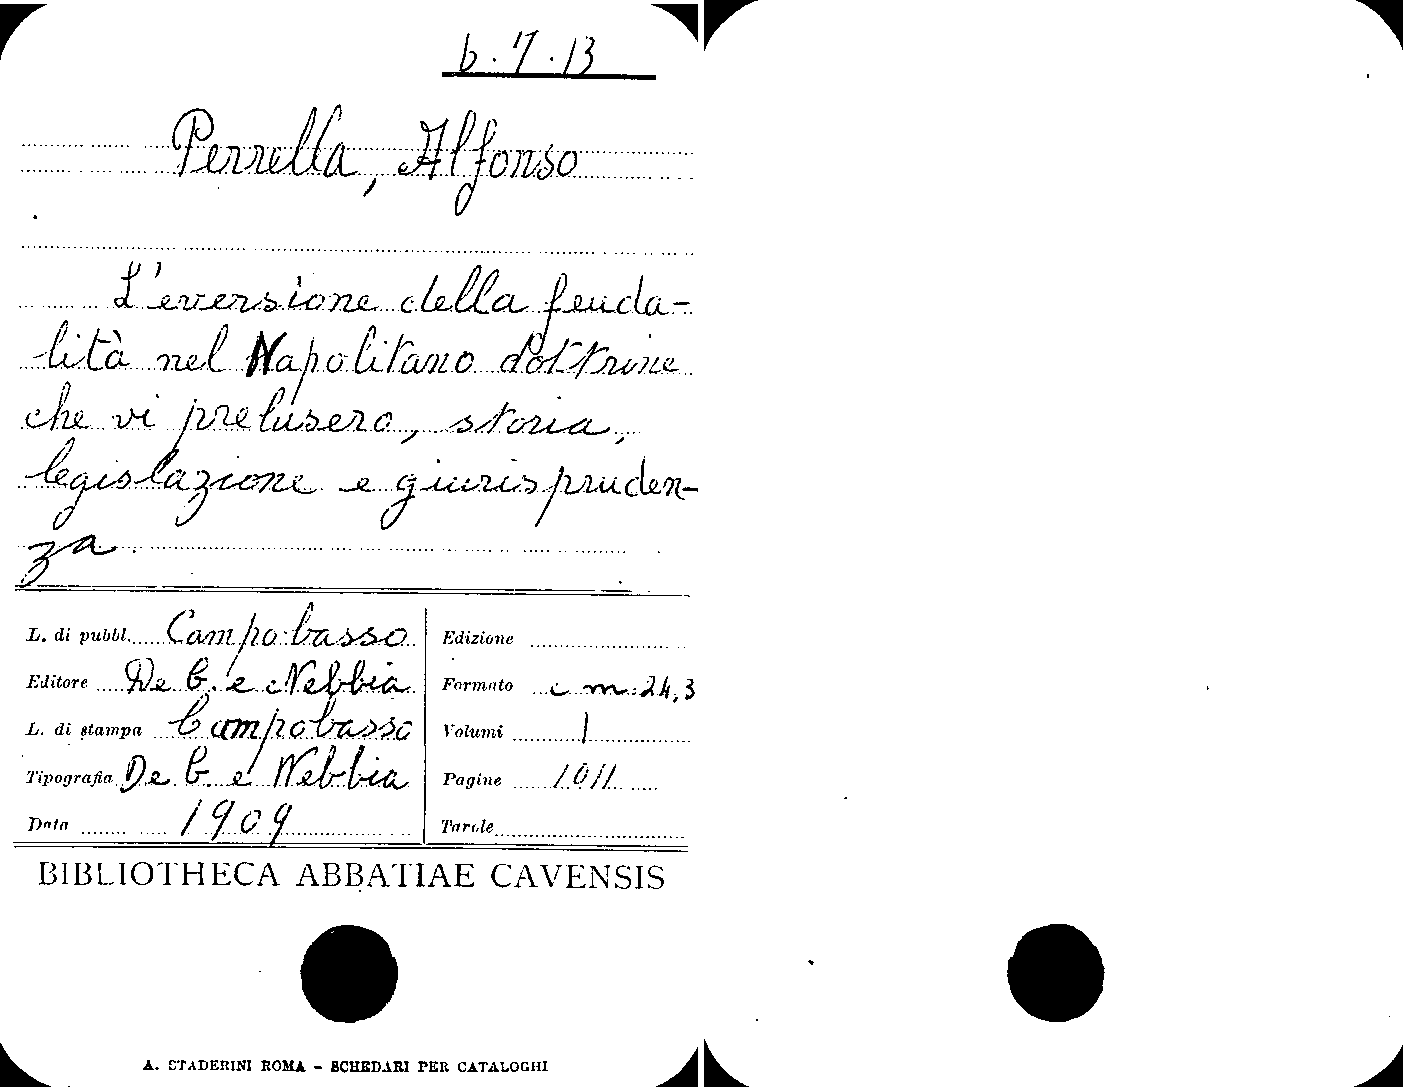 b.7.13
Perrella, Alfonso
L'eversione della feuda-
lità nel Napolitano dottrine
che vi prelusero, storia,
legislazione e giurispruden-
za.
L. di pubbl. Campobasso
Editore De G. e Nebbia
L. di stampa Campobasso
Tipografia De G. e Nebbia
Data 1909
Edizione
Formato cm. 24,3
Volumi 1
Pagine 1011
Tarole
BIBLIOTHECA ABBATIAE CAVENSIS
A. STADERINI ROMA - SCHEDARI PER CATALOGHI